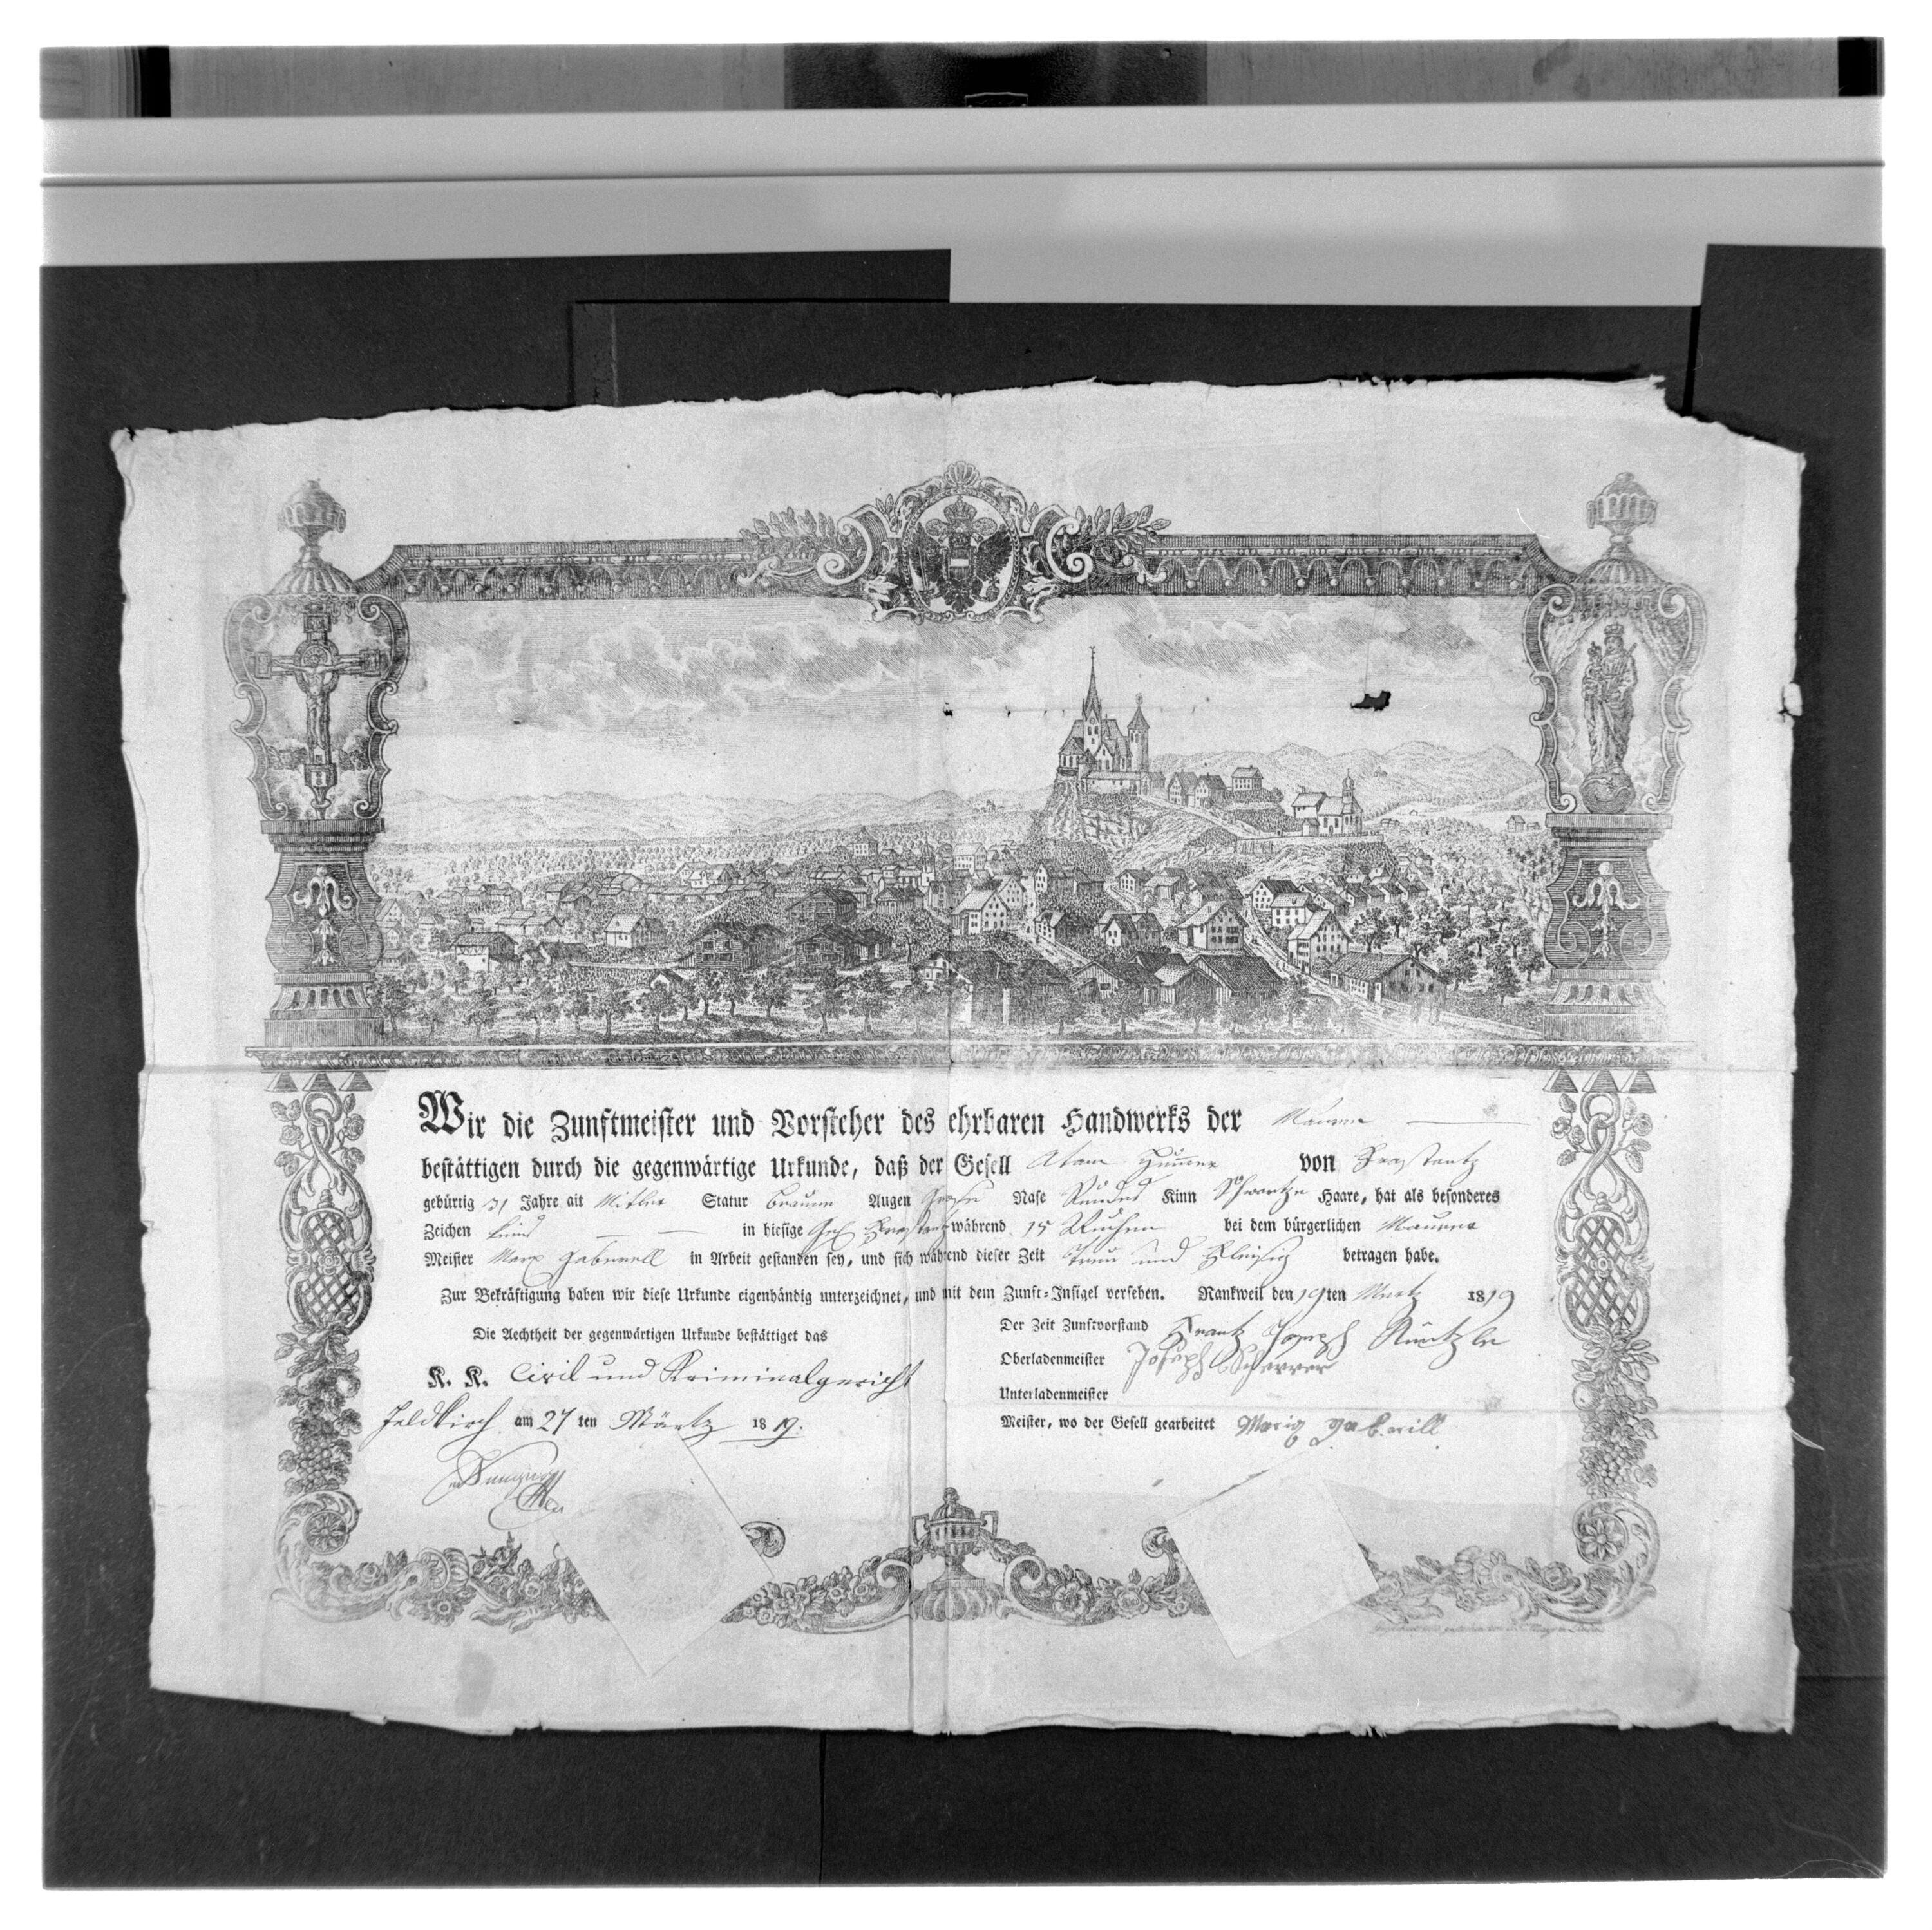 Wir die Zunftmeister und Vorsteher des ehrbaren Handwerks der Maurer
bestättigen durch die gegenwärtige Urkunde, daß der Gesell Adam von Frastantz
gebürtig 31 Jahre alt Mitler Statur braune Augen große Nase Rundes Kinn Schwartze Haare, hat als besonderes
Zeichen keins in hiesige während 15 Wuchen bei dem bürgerlichen Maurer
Meister Marx Gabriell in Arbeit gestanden sey, und sich während dieser Zeit Treu und Fleißig betragen habe.
Zur Bekräftigung haben wir diese Urkunde eigenhändig unterzeichnet, und mit dem Zunft-Insigel versehen. Rankweil den 19ten Martz 1819
Die Aechtheit der gegenwärtigen Urkunde bestättiget das
K. K. Civil und Kriminalgericht
Feldkirch am 27 ten Märtz 1819.
Der Zeit Zunftvorstand Frantz Joseph
Oberladenmeister Joseph Scherrer
Unterladenmeister
Meister, wo der Gesell gearbeitet